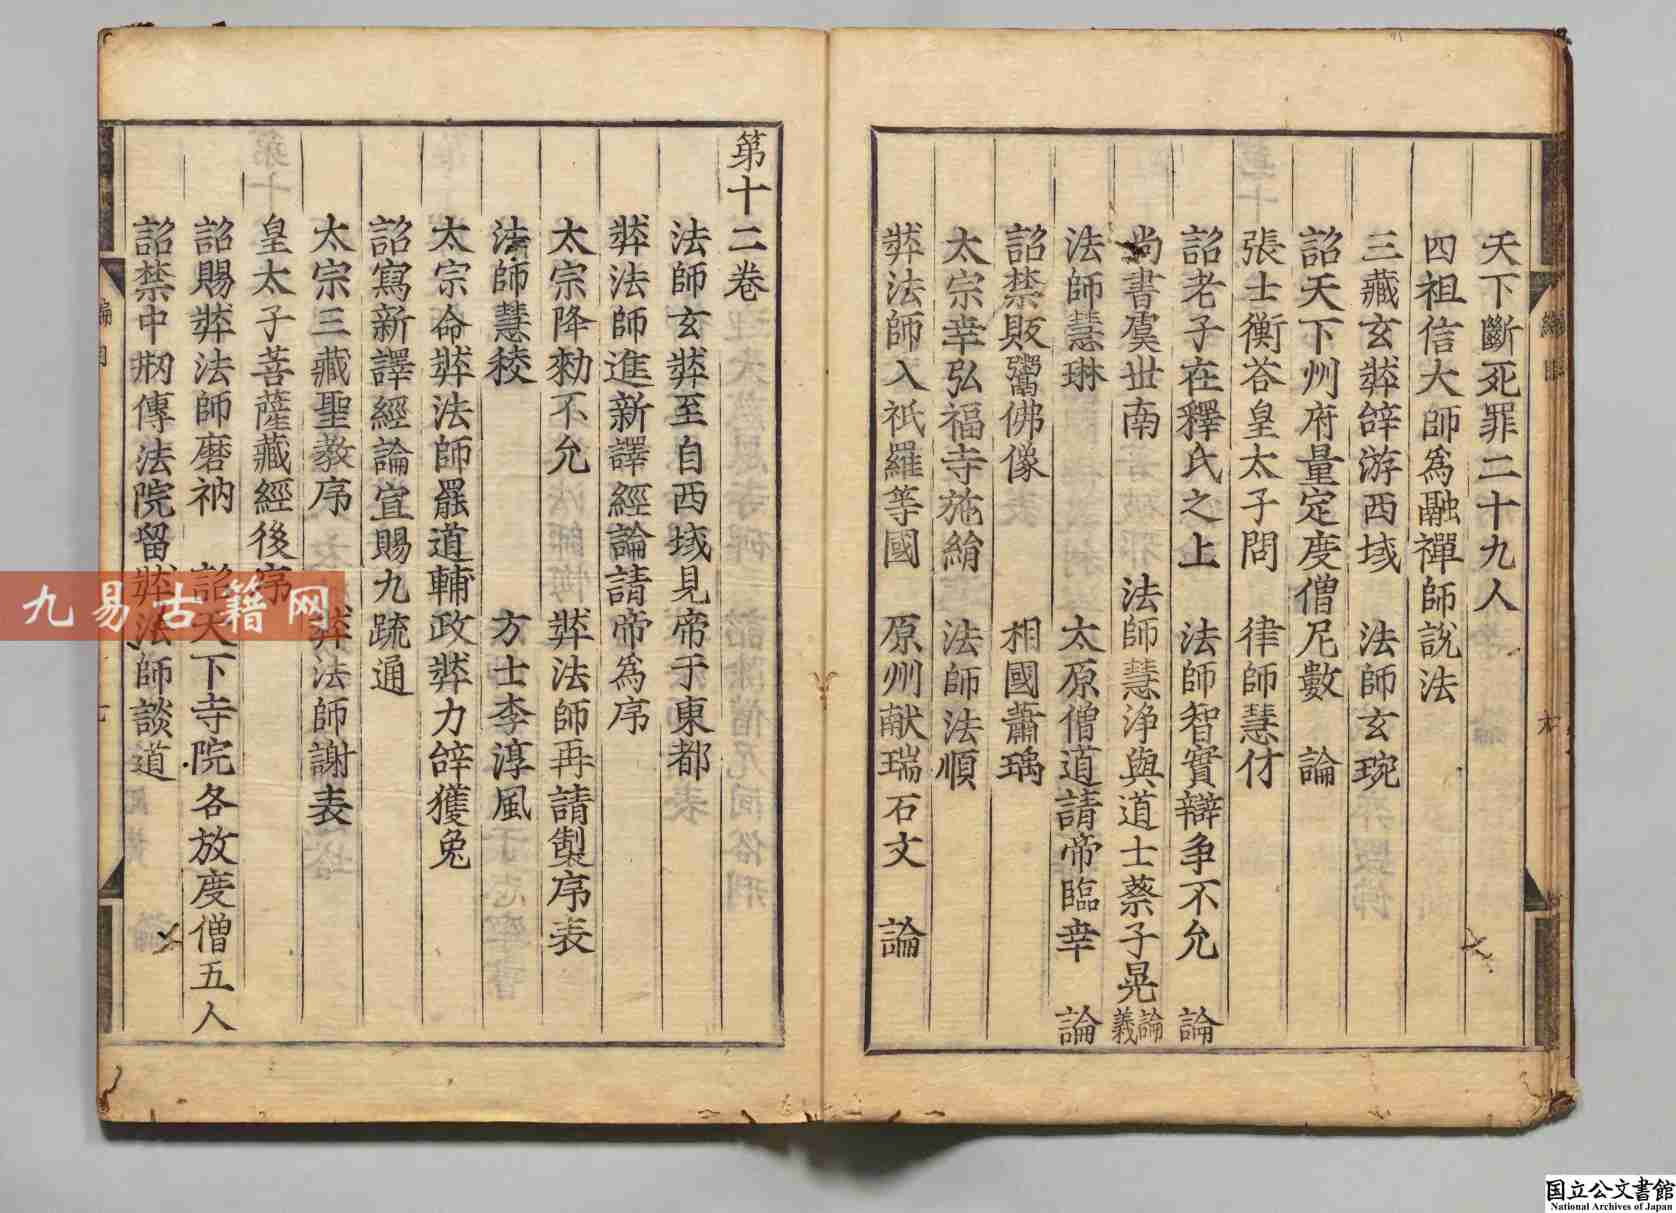 天下斷死罪二十九人
四祖信大師爲融禪師說法
三藏玄奘辝游西域　法師玄琬
詔天下州府量定度僧尼數　論
張士衡荅皇太子問　律師慧
詔老子在釋氏之上　法師智實辯争不允　論
尚書虞世南　法師慧浄與道士蔡子晃論義
法師慧琳　太原僧道請帝臨幸　論
詔禁販鬻佛像　相國蕭瑀
太宗幸弘福寺施絹　法師法順
奘法師入祇羅等國　原州献瑞石文　論
第十二卷
法師玄奘至自西域見帝于東都
奘法師進新譯經論請帝爲序
太宗降勑不允　奘法師再請製序表
法師慧稜　方士李淳風
太宗命奘法師罷道輔政奘力辝獲免
詔寫新譯經論宣賜九䟽通
太宗三藏聖教序　奘法師謝表
皇太子菩薩藏經後序
詔賜奘法師磨衲　詔天下寺院各放度僧五人
詔禁中刱傳法院留奘法師談道
編目
七
九易古籍网
国立公文書館
National Archives of Japan